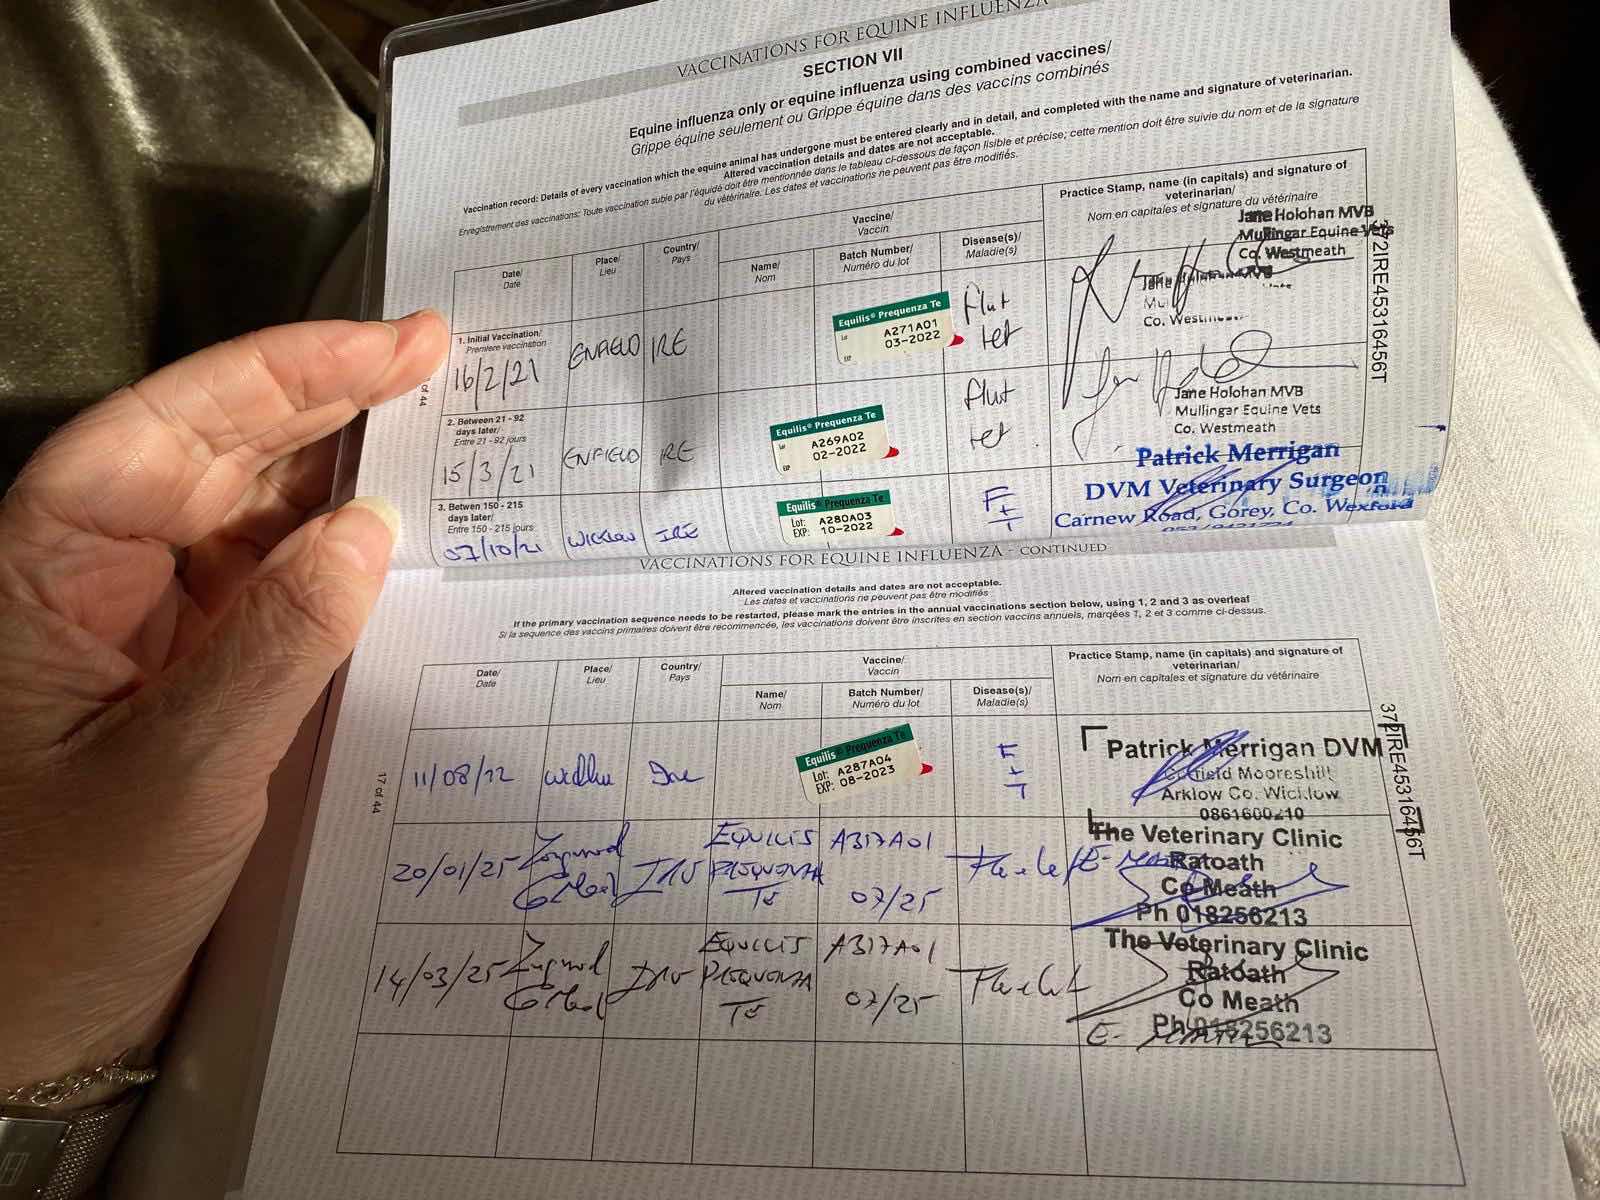 VACCINATIONS FOR EQUINE INFLUENZA
SECTION VII
Equine influenza only or equine influenza using combined vaccines/
Grippe équine seulement ou Grippe équine dans des vaccins combinés
Vaccination record: Details of every vaccination which the equine animal has undergone must be entered clearly and in detail, and completed with the name and signature of veterinarian.
Altered vaccination details and dates are not acceptable.
Enregistrement des vaccinations: Toute vaccination subie par l'équidé doit être mentionnée dans le tableau ci-dessous de façon lisible et précise; cette mention doit être suivie du nom et de la signature
du vétérinaire. Les dates et vaccinations ne peuvent pas être modifiés.
Date/
Date
Place/
Lieu
Country/
Pays
Vaccine/
Vaccin
Name/
Nom
Batch Number/
Numéro du lot
Disease(s)/
Maladie(s)
Practice Stamp, name (in capitals) and signature of
veterinarian/
Nom en capitales et signature du vétérinaire
1. Initial Vaccination/
Premiere vaccination
16/2/21
ENFIELD
IRE
Equilis® Prequenza Te
Lot
A271A01
03-2022
EXP
flut
tet
Jane Holohan MVB
Mullingar Equine Vets
Co. Westmeath
2. Between 21 - 92
days later/
Entre 21 - 92 jours
15/3/21
ENFIELD
IRE
Equilis® Prequenza Te
Lot
A269A02
02-2022
EXP
flut
tet
Jane Holohan MVB
Mullingar Equine Vets
Co. Westmeath
3. Betwen 150 - 215
days later/
Entre 150 - 215 jours
07/10/21
Wicklow
IRE
Equilis® Prequenza Te
Lot: A280A03
EXP: 10-2022
F
+
T
Patrick Merrigan
DVM Veterinary Surgeon
Carnew Road, Gorey, Co. Wexford
372IRE45316456T
of 44
VACCINATIONS FOR EQUINE INFLUENZA - CONTINUED
Altered vaccination details and dates are not acceptable.
Les dates et vaccinations ne peuvent pas être modifiés
If the primary vaccination sequence needs to be restarted, please mark the entries in the annual vaccinations section below, using 1, 2 and 3 as overleaf
Si la sequence des vaccins primaires doivent être recomencée, les vaccinations doivent être inscrites en section vaccins annuels, marqées 1, 2 et 3 comme ci-dessus.
Date/
Date
Place/
Lieu
Country/
Pays
Vaccine/
Vaccin
Name/
Nom
Batch Number/
Numéro du lot
Disease(s)/
Maladie(s)
Practice Stamp, name (in capitals) and signature of
veterinarian/
Nom en capitales et signature du vétérinaire
11/08/22
Ire
Equilis® Prequenza Te
Lot: A287A04
EXP: 08-2023
F
+
T
Patrick Merrigan DVM
Mooreshill
Arklow Co. Wicklow
0861600210
20/01/25
EQUILIS
PREQUENZA
TE
A317A01
07/25
The Veterinary Clinic
Ratoath
Co Meath
Ph 018256213
14/03/25
EQUILIS
PREQUENZA
TE
A317A01
07/25
The Veterinary Clinic
Ratoath
Co Meath
Ph 018256213
17 of 44
372IRE45316456T